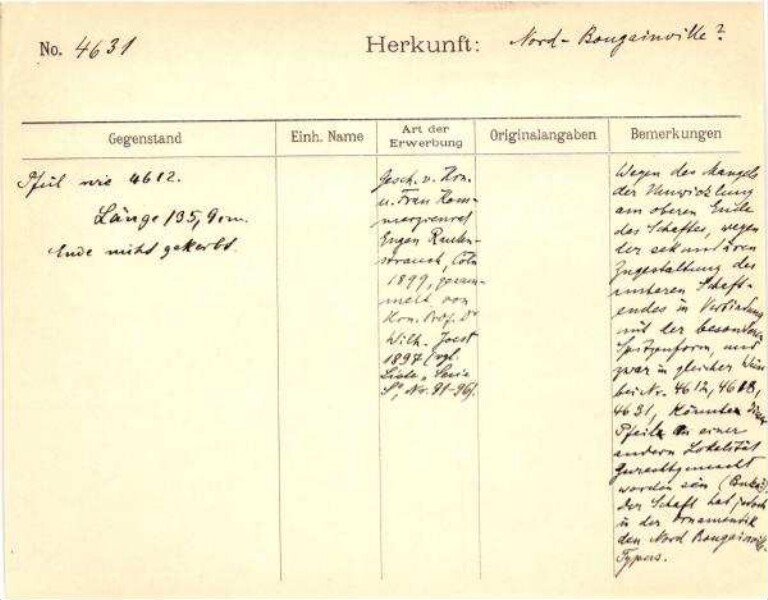 No. 4631
Herkunft: Nord-Bougainville?
Gegenstand
Einh. Name
Art der Erwerbung
Originalangaben
Bemerkungen
Pfeil wie 4612.
Länge 135,9 cm.
Ende nicht gekerbt
Gesch. v. Hrn.
u. Frau Kom-
merzienrat
Eugen Rauten-
strauch, Cöln
1899, gesam-
melt von
Hrn. Prof. Dr
Wilh. Joest
1897 (vgl.
Liste „Serie
S", Nr. 81-96).
Wegen des Mangels
der Umwicklung
am oberen Ende
des Schaftes, wegen
der sekundären
Zugestaltung des
unteren Schaft-
endes in Verbindung
mit der besonderen
Spitzenform, und
zwar in gleicher Weise
bei Nr. 4612, 4613,
4631, könnten diese
Pfeile an einer
andern Lokalität
zurechtgemacht
worden sein (Buka?)
Der Schaft hat jedoch
in der Ornamentik
den Nord Bougainville-
Typus.